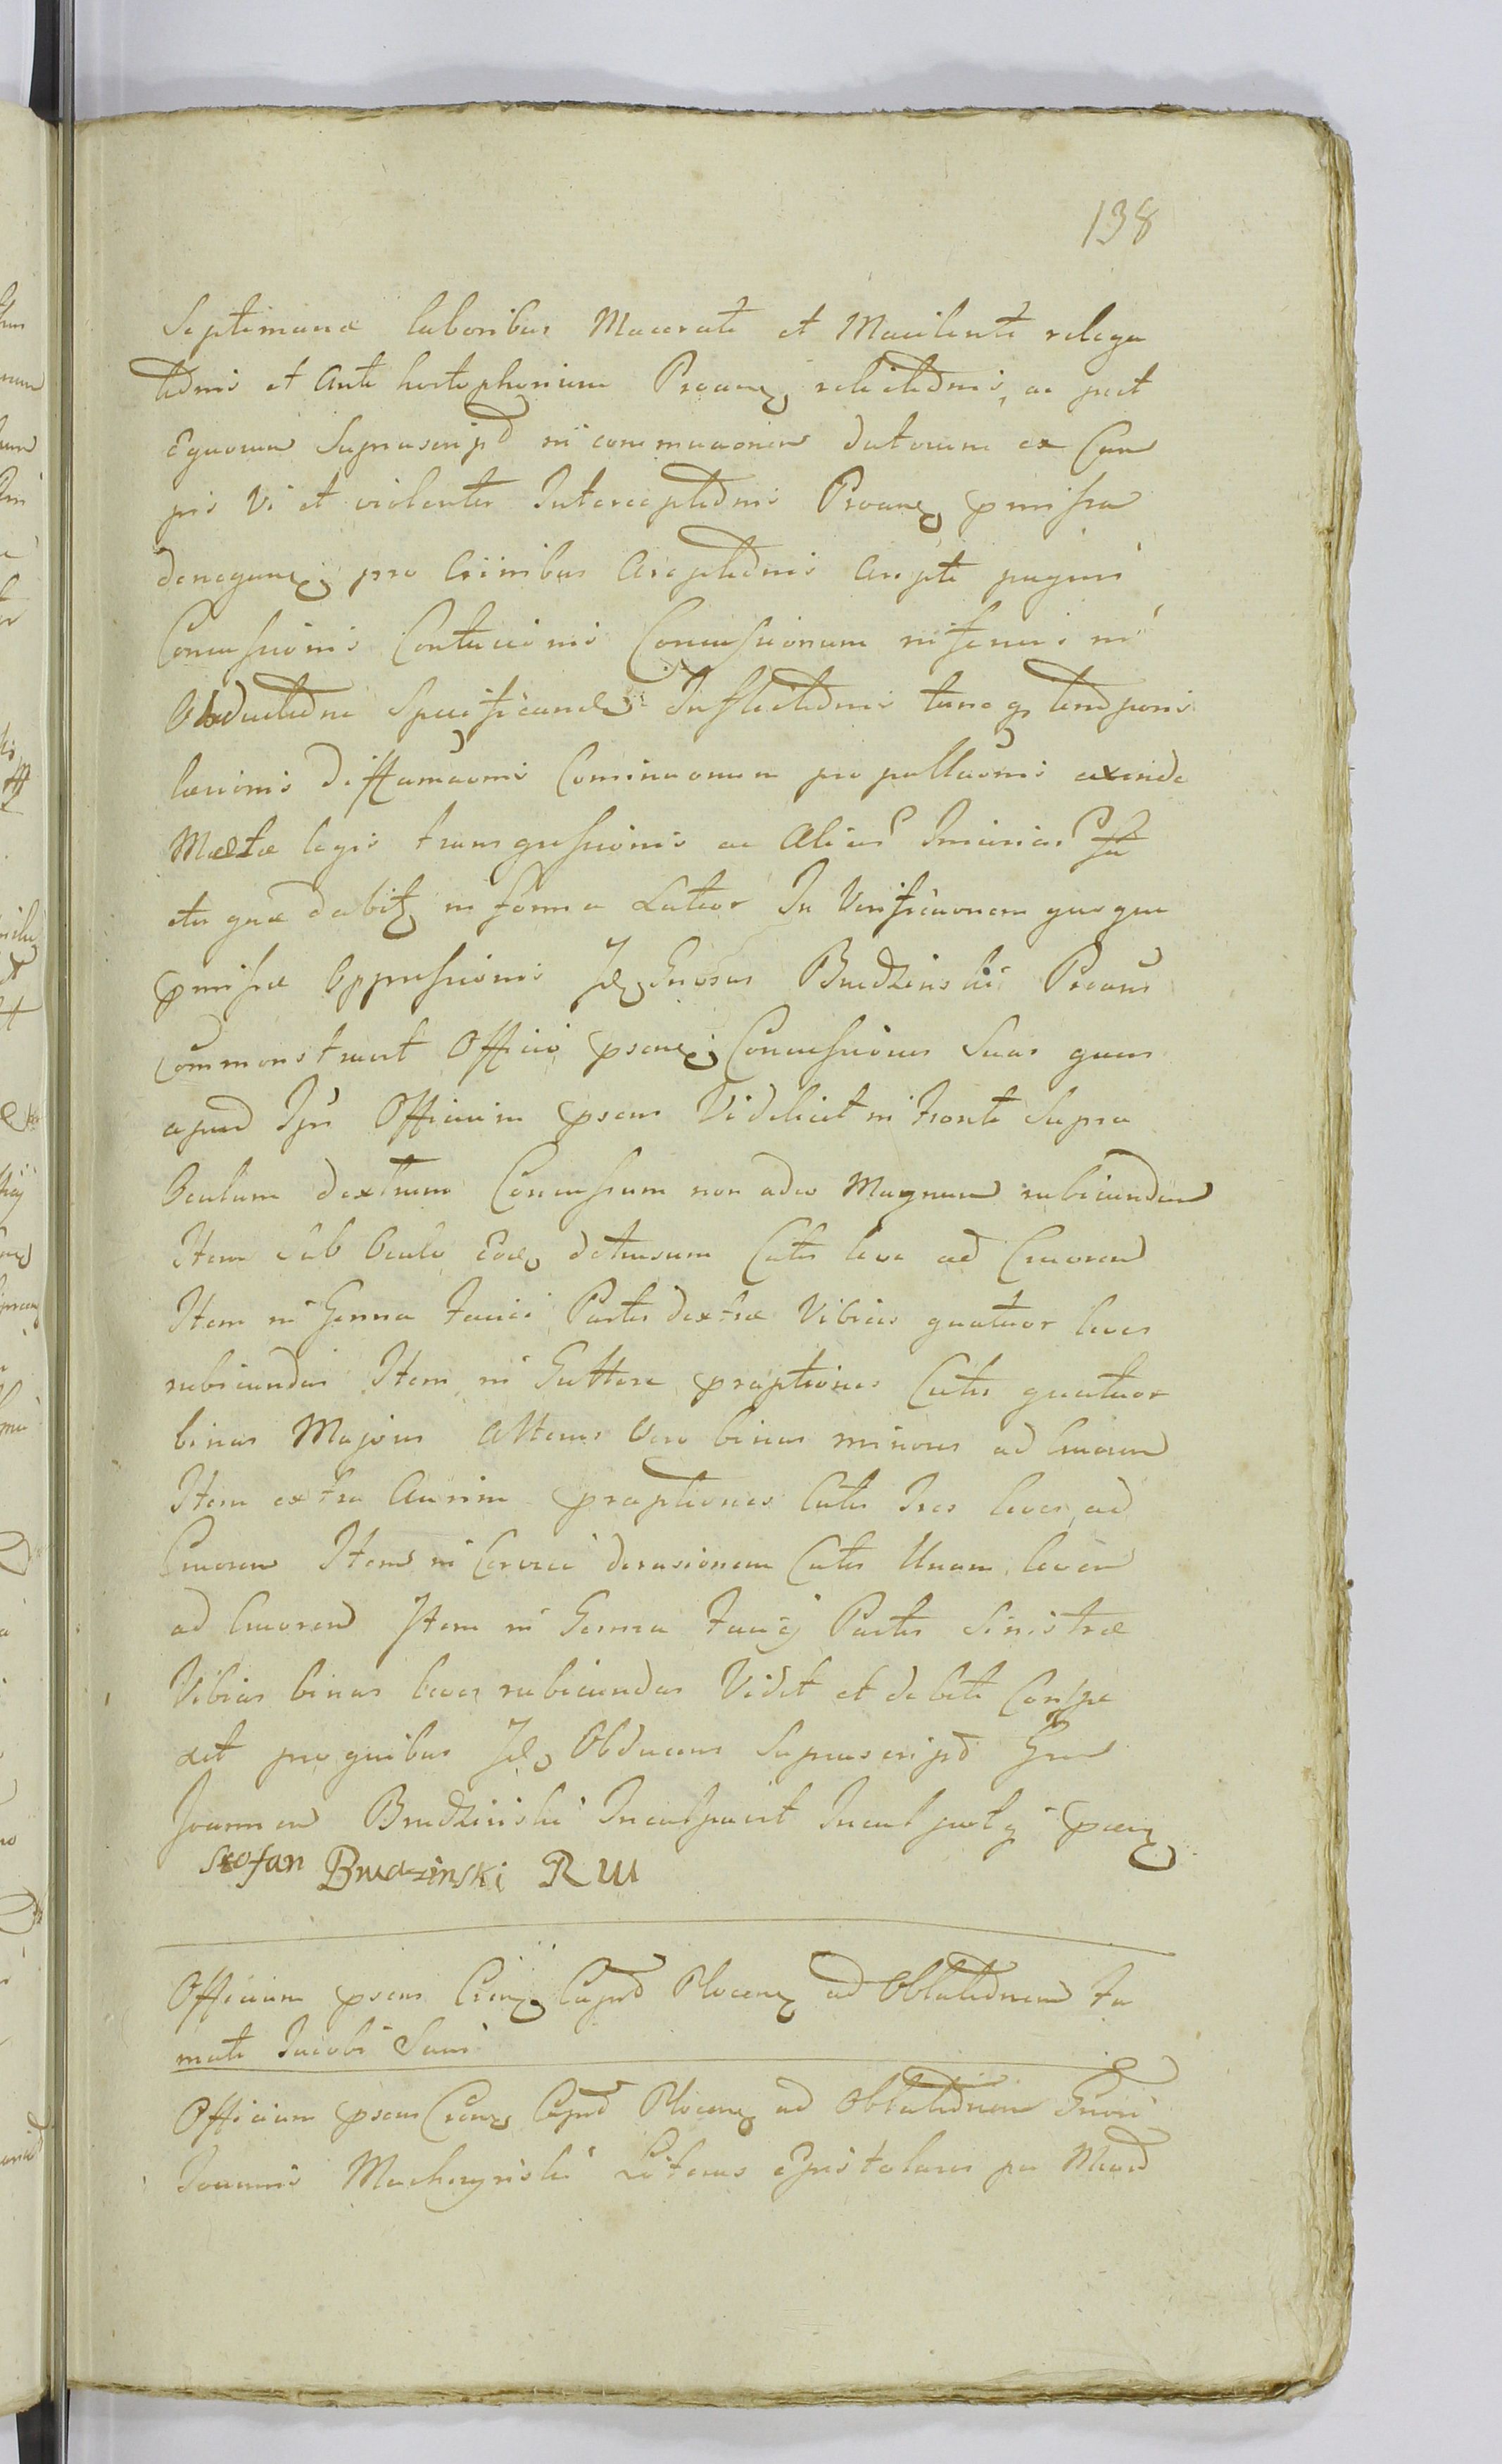 138
Septimanæ laboribus Macerate et Macilente relega
tionis et ante hortophorium relictionis, ac pret
Equorum Suprascript in commutaonem datorum ex Cam
pis Vi et violenter Interceptionis pmissa
pro Criibus Areptionis Aripte pugni
Concussionis Contusionis Concussionum inferius in
Obductione Specificand Inflictionis tuncq temporis
læsionis diffamaonis Cominaonum propallaonis exinde
Mæltæ legis transgressionis ac alias Iniurias
etu quæ dabit in forma Latior In Verificaonem quoque
pmissæ Oppressionis Id Gnosus Brudzinski
commonstravit Officio psen Concussiones Suas quas
apud Ips Officium psens Videlicet in fronte Supra
Oculum dextrum Concussum non adeo Magnum rubicundum
Item Sub Oculo Eod detrusum Cutis leve ad Cruorem
Item in Genna faciei Partis dextræ Vibices quatuor leves
rubicundas Item in Guttere praptiones Cutis quatuor
binas Majores Alteras Vero binas minores ad Cruorem
Item extra Aurim praptiones Cutis tres leves ad
Cruorem Item in Cervice derasionem Cutis Unam levem
ad Cruorem Item in Genna facij Partis Sinistræ
Vibices binas leves rubicundas Vidit et debite Conspe
xit pro quibus Id Obducens Suprascript Gnm
Joannem Brudzinski Inculpavit Inculpatq
Stefan Brudzinski R W
Officium psens Cren Cajnd Plocen ad Oblationem Fa
mati Jacobi Sui
Officium psens Cren Cajnd Plocen ad Oblationem Gnosi
Joannis Machczynski Literas Epistolares per Mund